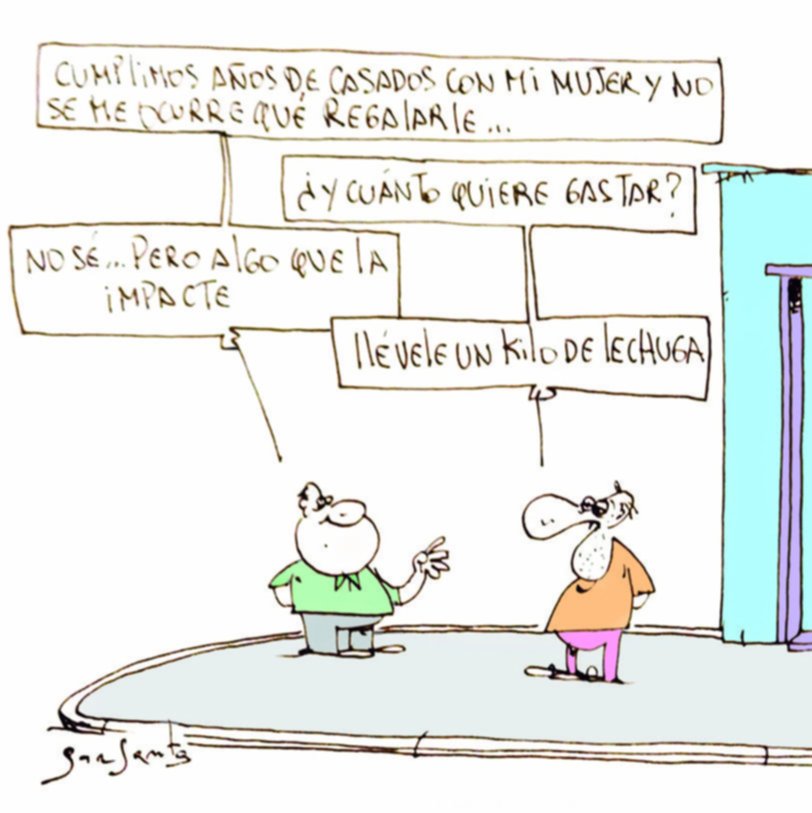 CUMPLIMOS AÑOS DE CASADOS CON MI MUJER Y NO
SE ME OCURRE QUÉ REGALARLE...
¿Y CUÁNTO QUIERE GASTAR?
NO SÉ... PERO ALGO QUE LA
IMPACTE
LLÉVELE UN KILO DE LECHUGA